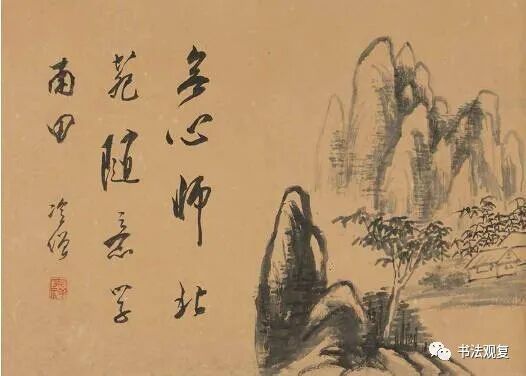 無心師北
苑隨意學
南田
冷僧
书法观复